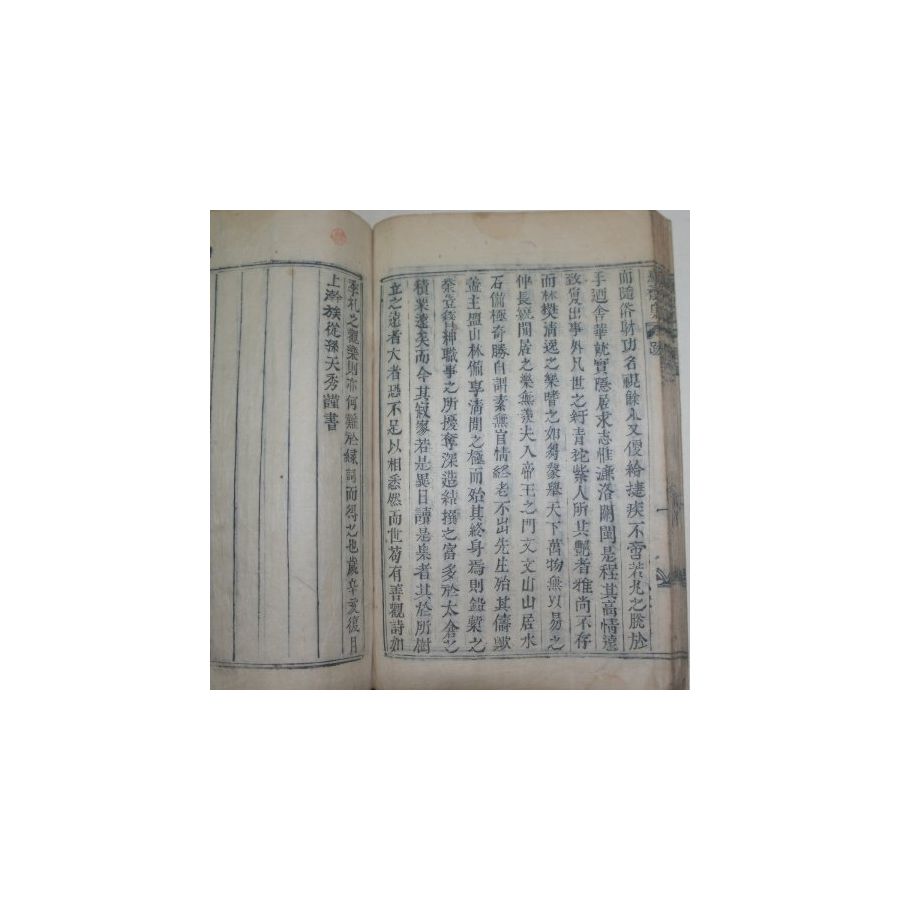 而隨俗財功名視餘人又優給捷疾不啻若兆之勝於
手迺舍華就實隱居求志惟濂洛關閩是程其高情遠
致夐出事外凡世之紆青拕紫人所其艷者雅尚不存
而林樊清逸之樂嗜之如芻豢舉天下萬物無以易之
仲長統閒居之樂無羨夫入帝王之門文文山山居水
石備極奇勝自謂素無宦情終老不出先生殆其儔歟
並主盟山林備享清閒之極而殆其終身焉則鉛槧之
業豈神職事之所擾奪深造結撰之富多於太倉之
積業遠矣而今其寂寥若是異日讀是集者其於所樹
立之遠者大者恐不足以相悉然而世苟有善觀詩如
季札之觀樂則亦何難於緣詞而得之也歲辛亥復月
上澣族從孫天秀謹書
跋